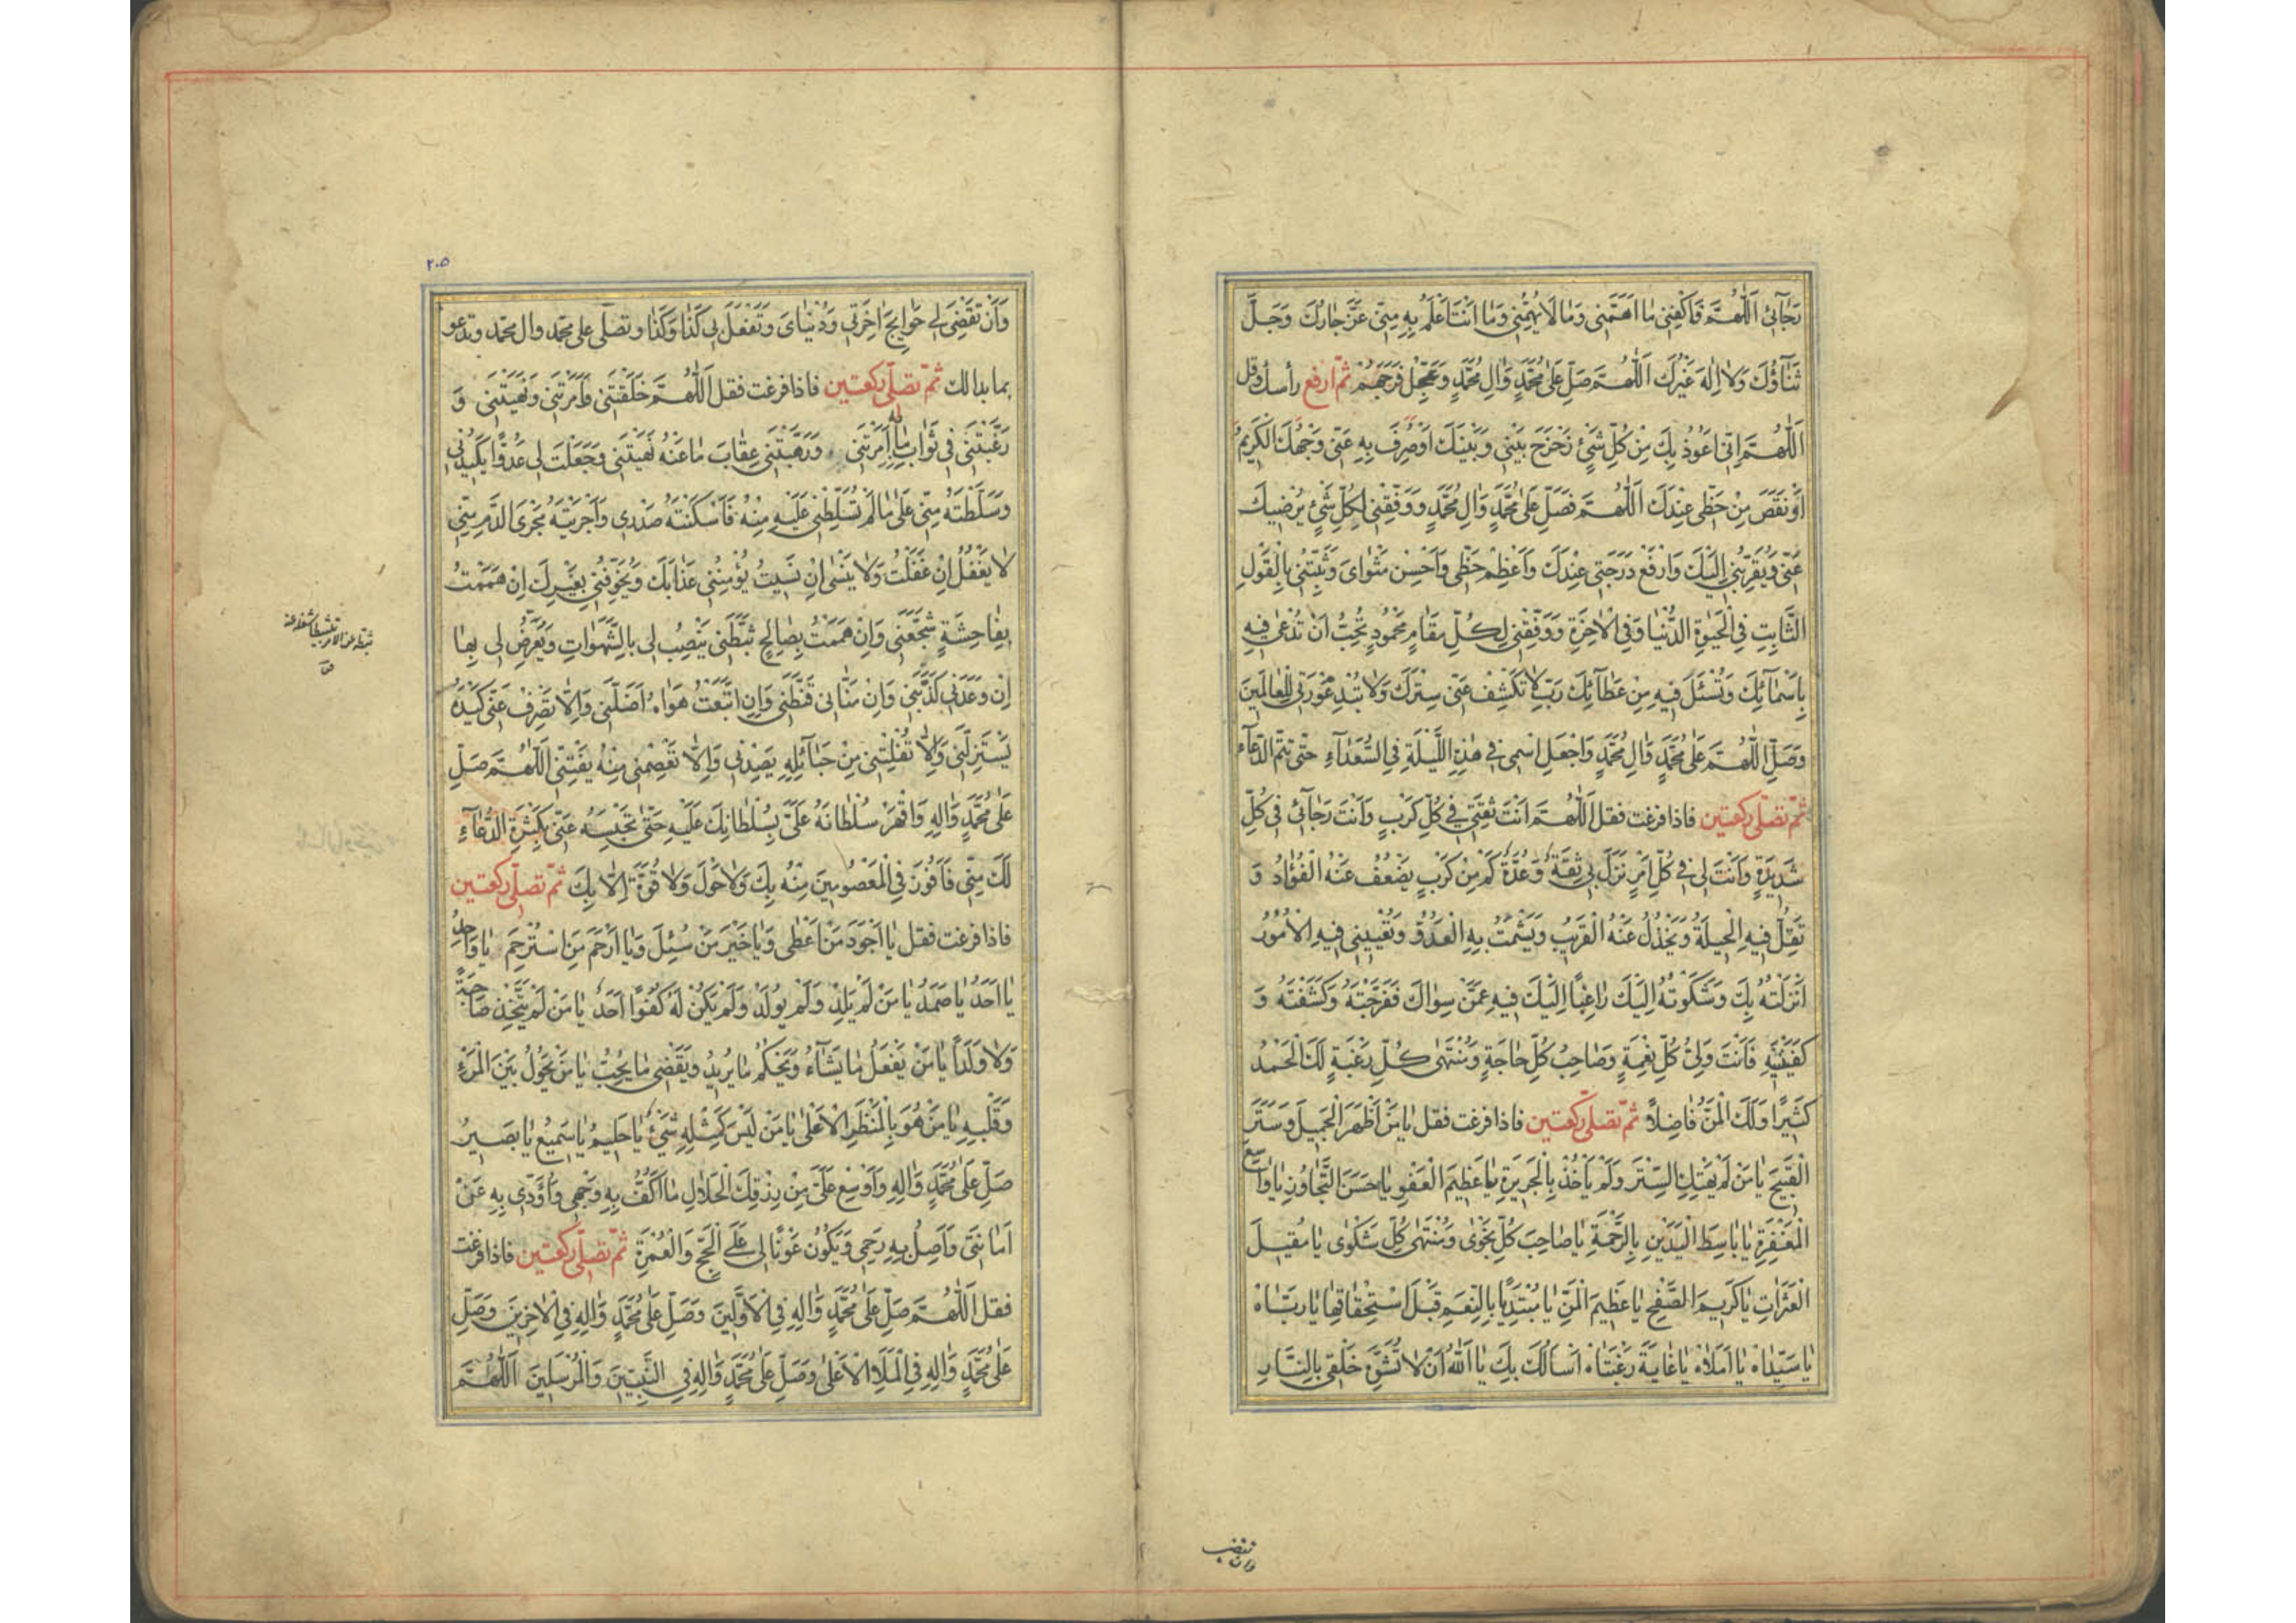 رَجَآئِی اَللّٰهُمَّ فَاکْفِنِی مٰا اَهَمَّنِی وَمٰا لَا یُهِمُّنِی وَمٰا اَنْتَ اَعْلَمُ بِهِ مِنِّی عَزَّ جٰارُكَ وَجَلَّ
ثَنٰآؤُكَ وَلٰا اِلٰهَ غَیْرُكَ اَللّٰهُمَّ صَلِّ عَلٰی مُحَمَّدٍ وَاٰلِ مُحَمَّدٍ وَعَجِّلْ فَرَجَهُمْ ثمّ ارفع رأسك وقل
اَللّٰهُمَّ اِنِّی اَعُوذُ بِكَ مِنْ کُلِّ شَیْئٍ زَحْزَحَ بَیْنِی وَبَیْنَكَ اَوْ صُرِفَ بِهِ عَنِّی وَجْهُكَ الْکَرِیمُ
اَوْ نَقَصَ مِنْ حَظِّی عِنْدَكَ اَللّٰهُمَّ فَصَلِّ عَلٰی مُحَمَّدٍ وَاٰلِ مُحَمَّدٍ وَوَفِّقْنِی لِکُلِّ شَیْئٍ یُرْضِیكَ
عَنِّی وَیُقَرِّبُنِی اِلَیْكَ وَارْفَعْ دَرَجَتِی عِنْدَكَ وَاَعْظِمْ حَظِّی وَاَحْسِنْ مَثْوٰایَ وَثَبِّتْنِی بِالْقَوْلِ
الثَّابِتِ فِی الْحَیٰوةِ الدُّنْیٰا وَفِی الْاٰخِرَةِ وَوَفِّقْنِی لِکُلِّ مَقٰامٍ مَحْمُودٍ تُحِبُّ اَنْ تُدْعٰی فِیهِ
بِاَسْمٰآئِكَ وَتُسْئَلَ فِیهِ مِنْ عَطٰآئِكَ رَبِّ لٰا تَکْشِفْ عَنِّی سِتْرَكَ وَلٰا تُبْدِ عَوْرَتِی لِلْعٰالَمِینَ
وَصَلِّ اللّٰهُمَّ عَلٰی مُحَمَّدٍ وَاٰلِ مُحَمَّدٍ وَاجْعَلِ اسْمِی فِی هٰذِهِ اللَّیْلَةِ فِی السُّعَدٰآءِ حتّی تتمّ الدّعآء
ثمّ تصلّی رکعتین فاذا فرغت فقل اَللّٰهُمَّ اَنْتَ ثِقَتِی فِی کُلِّ کَرْبٍ وَاَنْتَ رَجٰآئِی فِی کُلِّ
شَدِیدَةٍ وَاَنْتَ لِی فِی کُلِّ اَمْرٍ نَزَلَ بِی ثِقَةٌ وَعُدَّةٌ کَمْ مِنْ کَرْبٍ یَضْعُفُ عَنْهُ الْفُؤٰادُ وَ
تَقِلُّ فِیهِ الْحِیلَةُ وَیَخْذُلُ عَنْهُ الْقَرِیبُ وَیَشْمَتُ بِهِ الْعَدُوُّ وَتُعْیِینِی فِیهِ الْاُمُورُ
اَنْزَلْتُهُ بِكَ وَشَکَوْتُهُ اِلَیْكَ رٰاغِبًا اِلَیْكَ فِیهِ عَمَّنْ سِوٰاكَ فَفَرَّجْتَهُ وَکَشَفْتَهُ وَ
کَفَیْتَنِیهِ فَاَنْتَ وَلِیُّ کُلِّ نِعْمَةٍ وَصٰاحِبُ کُلِّ حٰاجَةٍ وَمُنْتَهٰی کُلِّ رَغْبَةٍ لَكَ الْحَمْدُ
کَثِیرًا وَلَكَ الْمَنُّ فٰاضِلًا ثمّ تصلّی رکعتین فاذا فرغت فقل یٰا مَنْ اَظْهَرَ الْجَمِیلَ وَسَتَرَ
الْقَبِیحَ یٰا مَنْ لَمْ یَهْتِكِ السِّتْرَ وَلَمْ یَأْخُذْ بِالْجَرِیرَةِ یٰا عَظِیمَ الْعَفْوِ یٰا حَسَنَ التَّجٰاوُزِ یٰا وٰاسِعَ
الْمَغْفِرَةِ یٰا بٰاسِطَ الْیَدَیْنِ بِالرَّحْمَةِ یٰا صٰاحِبَ کُلِّ نَجْوٰی وَمُنْتَهٰی کُلِّ شَکْوٰی یٰا مُقِیلَ
الْعَثَرٰاتِ یٰا کَرِیمَ الصَّفْحِ یٰا عَظِیمَ الْمَنِّ یٰا مُبْتَدِئًا بِالنِّعَمِ قَبْلَ اسْتِحْقٰاقِهٰا یٰا رَبّٰاهْ
یٰا سَیِّدٰاهْ یٰا اَمَلٰاهْ یٰا غٰایَةَ رَغْبَتٰاهْ اَسْاَلُكَ بِكَ یٰا اَللّٰهُ اَنْ لٰا تُشَوِّهَ خَلْقِی بِالنّٰارِ
وان تقضی
۲۰۵
وَاَنْ تَقْضِیَ لِی حَوٰایِجَ اٰخِرَتِی وَدُنْیٰایَ وَتَفْعَلَ بِی کَذٰا وَکَذٰا وتصلّی علی محمّد وال محمّد وتدعو
بما بدا لك ثمّ تصلّی رکعتین فاذا فرغت فقل اَللّٰهُمَّ خَلَقْتَنِی وَاَمَرْتَنِی وَنَهَیْتَنِی وَ
رَغَّبْتَنِی فِی ثَوٰابِ مٰا بِهِ اَمَرْتَنِی وَرَهَّبْتَنِی عِقٰابَ مٰا عَنْهُ نَهَیْتَنِی وَجَعَلْتَ لِی عَدُوًّا یَکِیدُنِی
وَسَلَّطْتَهُ مِنِّی عَلٰی مٰا لَمْ تُسَلِّطْنِی عَلَیْهِ مِنْهُ فَاَسْکَنْتَهُ صَدْرِی وَاَجْرَیْتَهُ مَجْرَی الدَّمِ مِنِّی
لٰا یَغْفُلُ اِنْ غَفَلْتُ وَلٰا یَنْسٰی اِنْ نَسِیتُ یُؤْمِنُنِی عَذٰابَكَ وَیُخَوِّفُنِی بِغَیْرِكَ اِنْ هَمَمْتُ
بِفٰاحِشَةٍ شَجَّعَنِی وَاِنْ هَمَمْتُ بِصٰالِحٍ ثَبَّطَنِی یَنْصِبُ لِی بِالشَّهَوٰاتِ وَیَعْرِضُ لِی بِهٰا
اِنْ وَعَدَنِی کَذَّبَنِی وَاِنْ مَنّٰانِی قَنَّطَنِی وَاِنِ اتَّبَعْتُ هَوٰاهُ اَضَلَّنِی وَاِلّٰا تَصْرِفْ عَنِّی کَیْدَهُ
یَسْتَزِلَّنِی وَاِلّٰا تُفْلِتْنِی مِنْ حَبٰآئِلِهِ یَصِدْنِی وَاِلّٰا تَعْصِمْنِی مِنْهُ یَفْتِنِّی اَللّٰهُمَّ صَلِّ
عَلٰی مُحَمَّدٍ وَاٰلِهِ وَاقْهَرْ سُلْطٰانَهُ عَلَیَّ بِسُلْطٰانِكَ عَلَیْهِ حَتّٰی تَحْبِسَهُ عَنِّی بِکَثْرَةِ الدُّعٰآءِ
لَكَ مِنِّی فَاَفُوزَ فِی الْمَعْصُومِینَ مِنْهُ بِكَ وَلٰا حَوْلَ وَلٰا قُوَّةَ اِلّٰا بِكَ ثمّ تصلّی رکعتین
فاذا فرغت فقل یٰا اَجْوَدَ مَنْ اَعْطٰی وَیٰا خَیْرَ مَنْ سُئِلَ وَیٰا اَرْحَمَ مَنِ اسْتُرْحِمَ یٰا وٰاحِدُ
یٰا اَحَدُ یٰا صَمَدُ یٰا مَنْ لَمْ یَلِدْ وَلَمْ یُولَدْ وَلَمْ یَکُنْ لَهُ کُفُوًا اَحَدٌ یٰا مَنْ لَمْ یَتَّخِذْ صٰاحِبَةً
وَلٰا وَلَدًا یٰا مَنْ یَفْعَلُ مٰا یَشٰآءُ وَیَحْکُمُ مٰا یُرِیدُ وَیَقْضِی مٰا یُحِبُّ یٰا مَنْ یَحُولُ بَیْنَ الْمَرْءِ
وَقَلْبِهِ یٰا مَنْ هُوَ بِالْمَنْظَرِ الْاَعْلٰی یٰا مَنْ لَیْسَ کَمِثْلِهِ شَیْئٌ یٰا حَلِیمُ یٰا سَمِیعُ یٰا بَصِیرُ
صَلِّ عَلٰی مُحَمَّدٍ وَاٰلِهِ وَاَوْسِعْ عَلَیَّ مِنْ رِزْقِكَ الْحَلٰالِ مٰا اَکُفُّ بِهِ وَجْهِی وَاُؤَدِّی بِهِ عَنْ
اَمٰانَتِی وَاَصِلُ بِهِ رَحِمِی وَیَکُونُ عَوْنًا لِی عَلَی الْحَجِّ وَالْعُمْرَةِ ثمّ تصلّی رکعتین فاذا فرغت
فقل اَللّٰهُمَّ صَلِّ عَلٰی مُحَمَّدٍ وَاٰلِهِ فِی الْاَوَّلِینَ وَصَلِّ عَلٰی مُحَمَّدٍ وَاٰلِهِ فِی الْاٰخِرِینَ وَصَلِّ
عَلٰی مُحَمَّدٍ وَاٰلِهِ فِی الْمَلَاِ الْاَعْلٰی وَصَلِّ عَلٰی مُحَمَّدٍ وَاٰلِهِ فِی النَّبِیِّینَ وَالْمُرْسَلِینَ اَللّٰهُمَّ
ثبّطه عن الامر تثبیطا شغله عنه